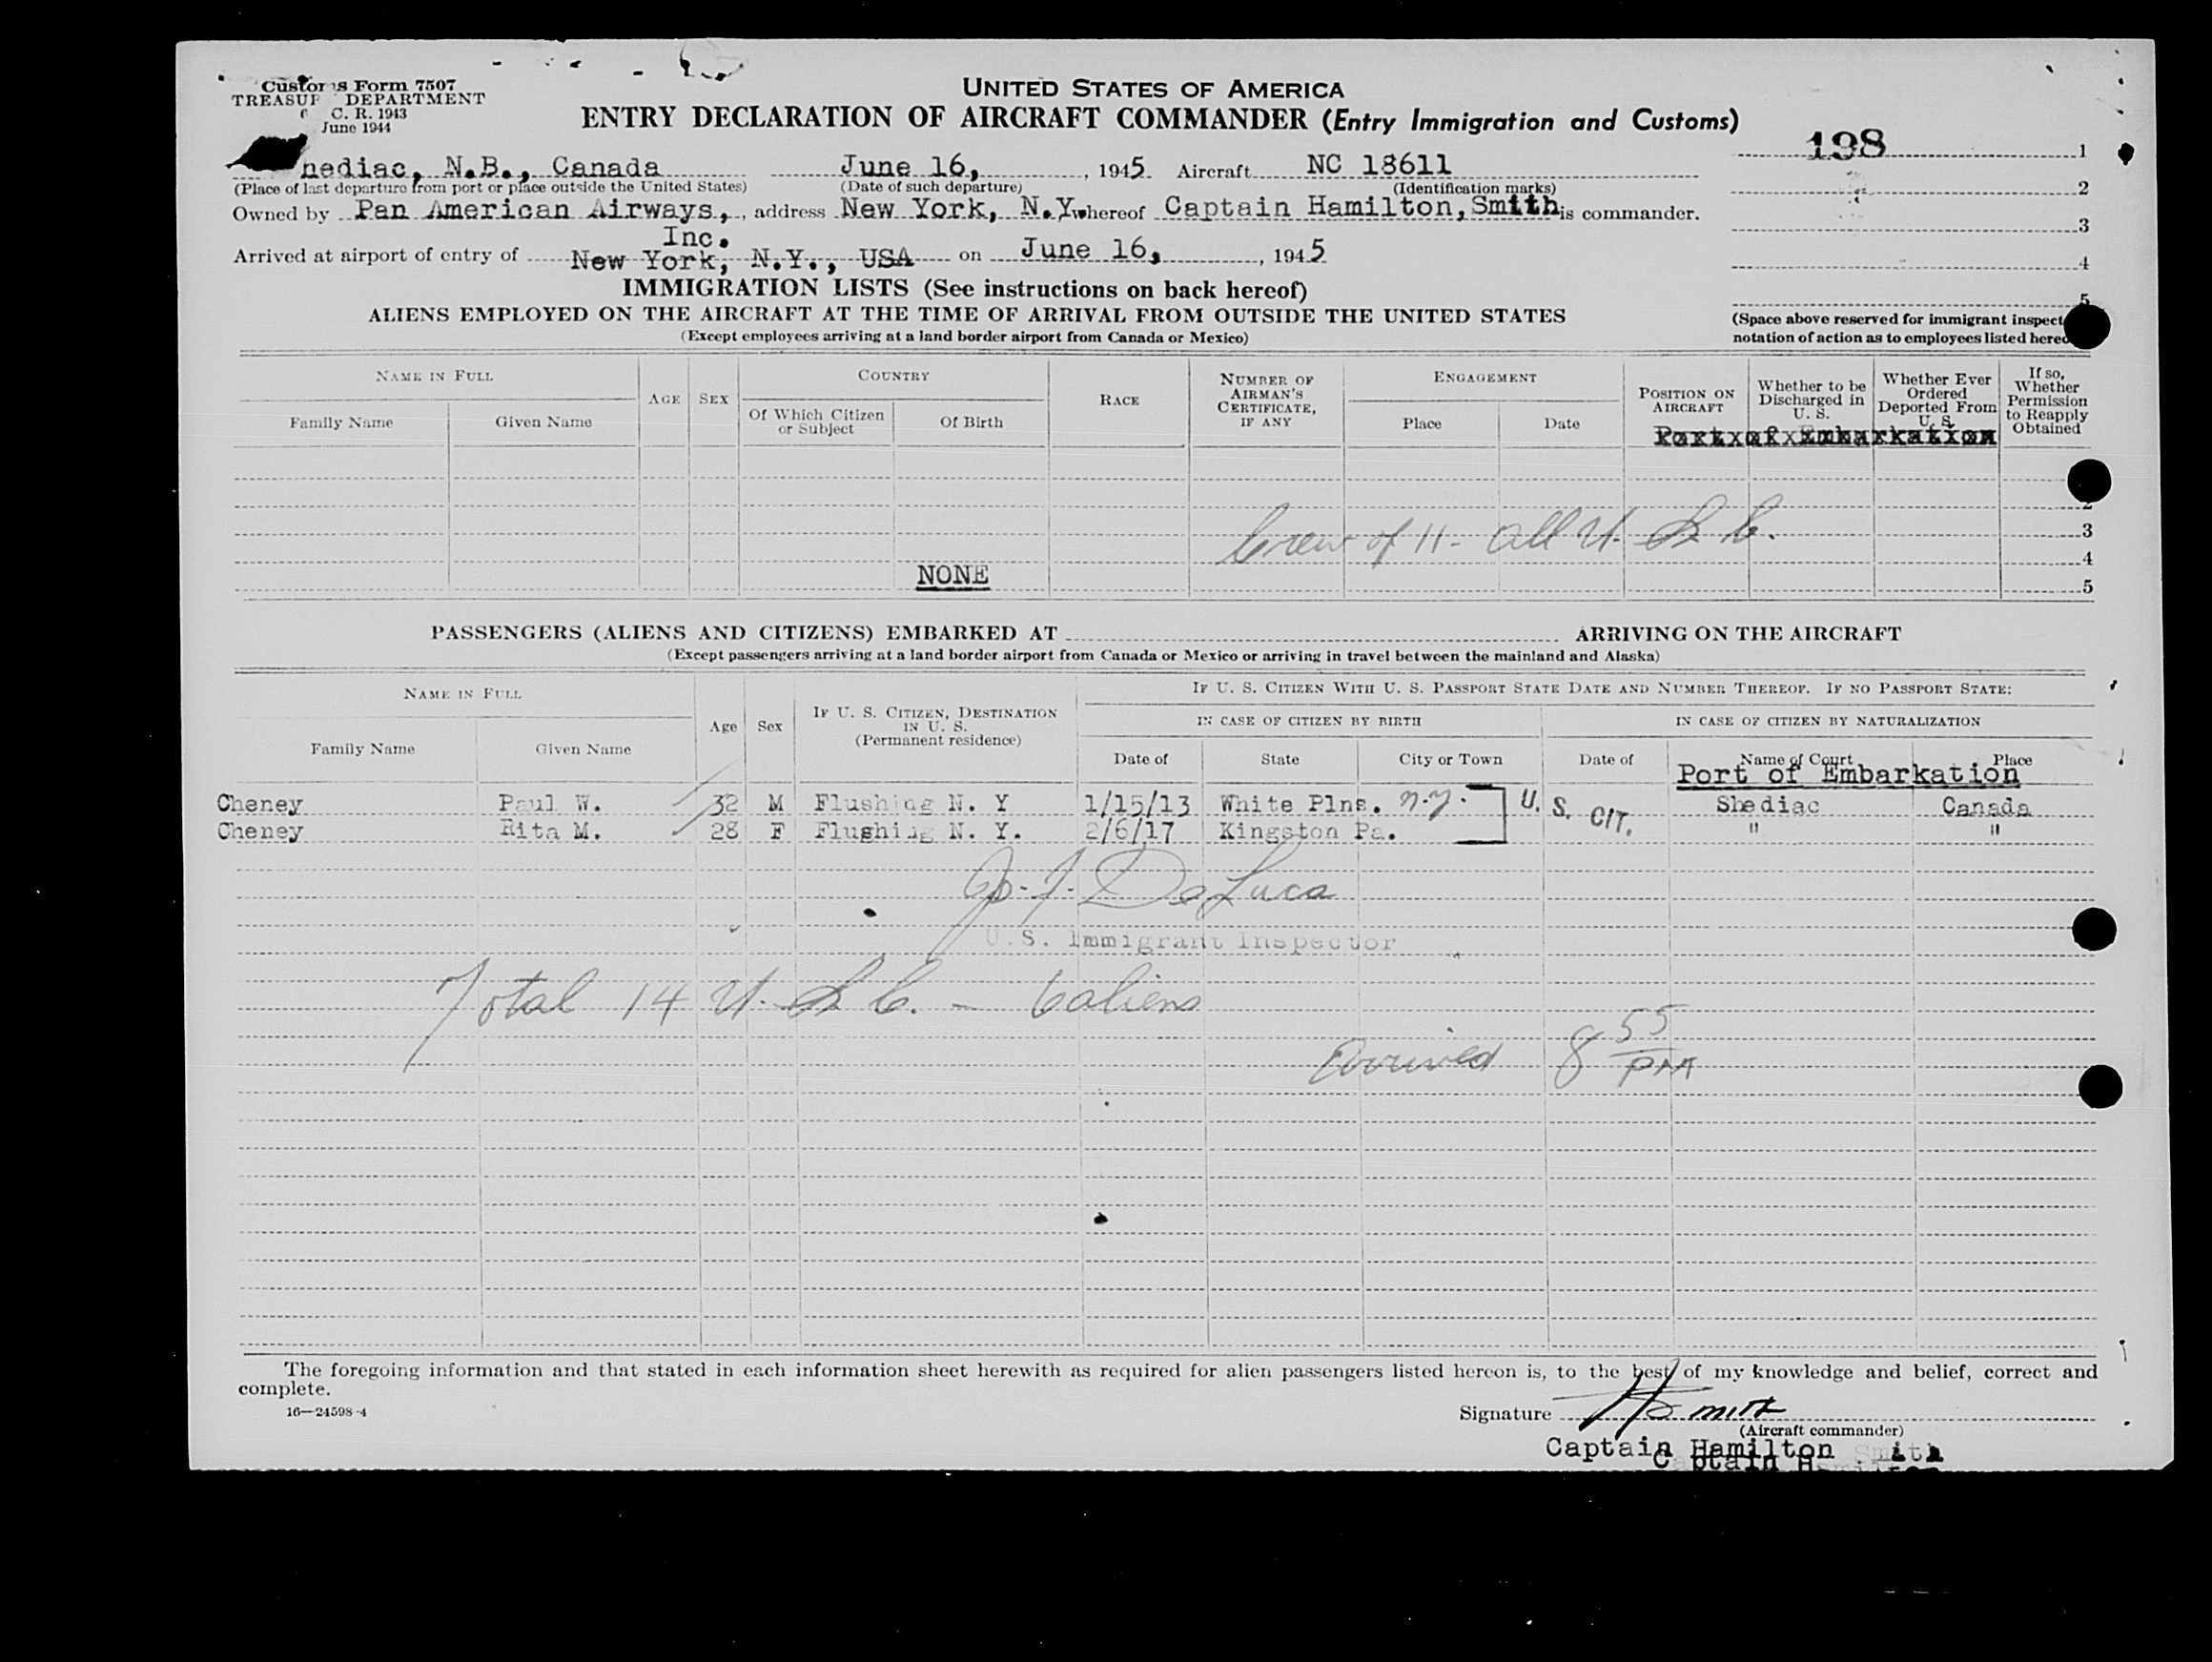 Customs Form 7507
TREASURY DEPARTMENT
C. R. 1943
June 1944
UNITED STATES OF AMERICA
ENTRY DECLARATION OF AIRCRAFT COMMANDER (Entry Immigration and Customs)
198 1
hediac, N.B., Canada June 16, , 1945 Aircraft NC 18611
(Place of last departure from port or place outside the United States) (Date of such departure) (Identification marks)
2
Owned by Pan American Airways, , address New York, N.Y. whereof Captain Hamilton, Smith is commander.
Inc.
3
Arrived at airport of entry of New York, N.Y., USA on June 16, , 1945
4
IMMIGRATION LISTS (See instructions on back hereof)
5
ALIENS EMPLOYED ON THE AIRCRAFT AT THE TIME OF ARRIVAL FROM OUTSIDE THE UNITED STATES
(Except employees arriving at a land border airport from Canada or Mexico)
(Space above reserved for immigrant inspect
notation of action as to employees listed hereo
NAME IN FULL
Family Name Given Name
AGE SEX
COUNTRY
Of Which Citizen or Subject Of Birth
RACE
NUMBER OF AIRMAN'S CERTIFICATE, IF ANY
ENGAGEMENT
Place Date
POSITION ON AIRCRAFT
Whether to be Discharged in U. S.
Whether Ever Ordered Deported From U. S.
If so, Whether Permission to Reapply Obtained
Port of Embarkation
2
Crew of 11 - All U. S. C. 3
4
NONE 5
PASSENGERS (ALIENS AND CITIZENS) EMBARKED AT ARRIVING ON THE AIRCRAFT
(Except passengers arriving at a land border airport from Canada or Mexico or arriving in travel between the mainland and Alaska)
NAME IN FULL
Family Name Given Name
Age Sex
IF U. S. CITIZEN, DESTINATION IN U. S.
(Permanent residence)
IF U. S. CITIZEN WITH U. S. PASSPORT STATE DATE AND NUMBER THEREOF. IF NO PASSPORT STATE:
IN CASE OF CITIZEN BY BIRTH IN CASE OF CITIZEN BY NATURALIZATION
Date of State City or Town Date of Name of Court Place
Port of Embarkation
Cheney Paul W. 32 M Flushing N. Y 1/15/13 White Plns. N.Y. U. S. CIT. Shediac Canada
Cheney Rita M. 28 F Flushing N. Y. 2/6/17 Kingston Pa. " "
DeLuca
U.S. Immigrant Inspector
Total 14 U. S. C. - 6 aliens
Arrived 8 55 PM
The foregoing information and that stated in each information sheet herewith as required for alien passengers listed hereon is, to the best of my knowledge and belief, correct and
complete.
16—24598-4
Signature H Smith
(Aircraft commander)
Captain Hamilton Smith